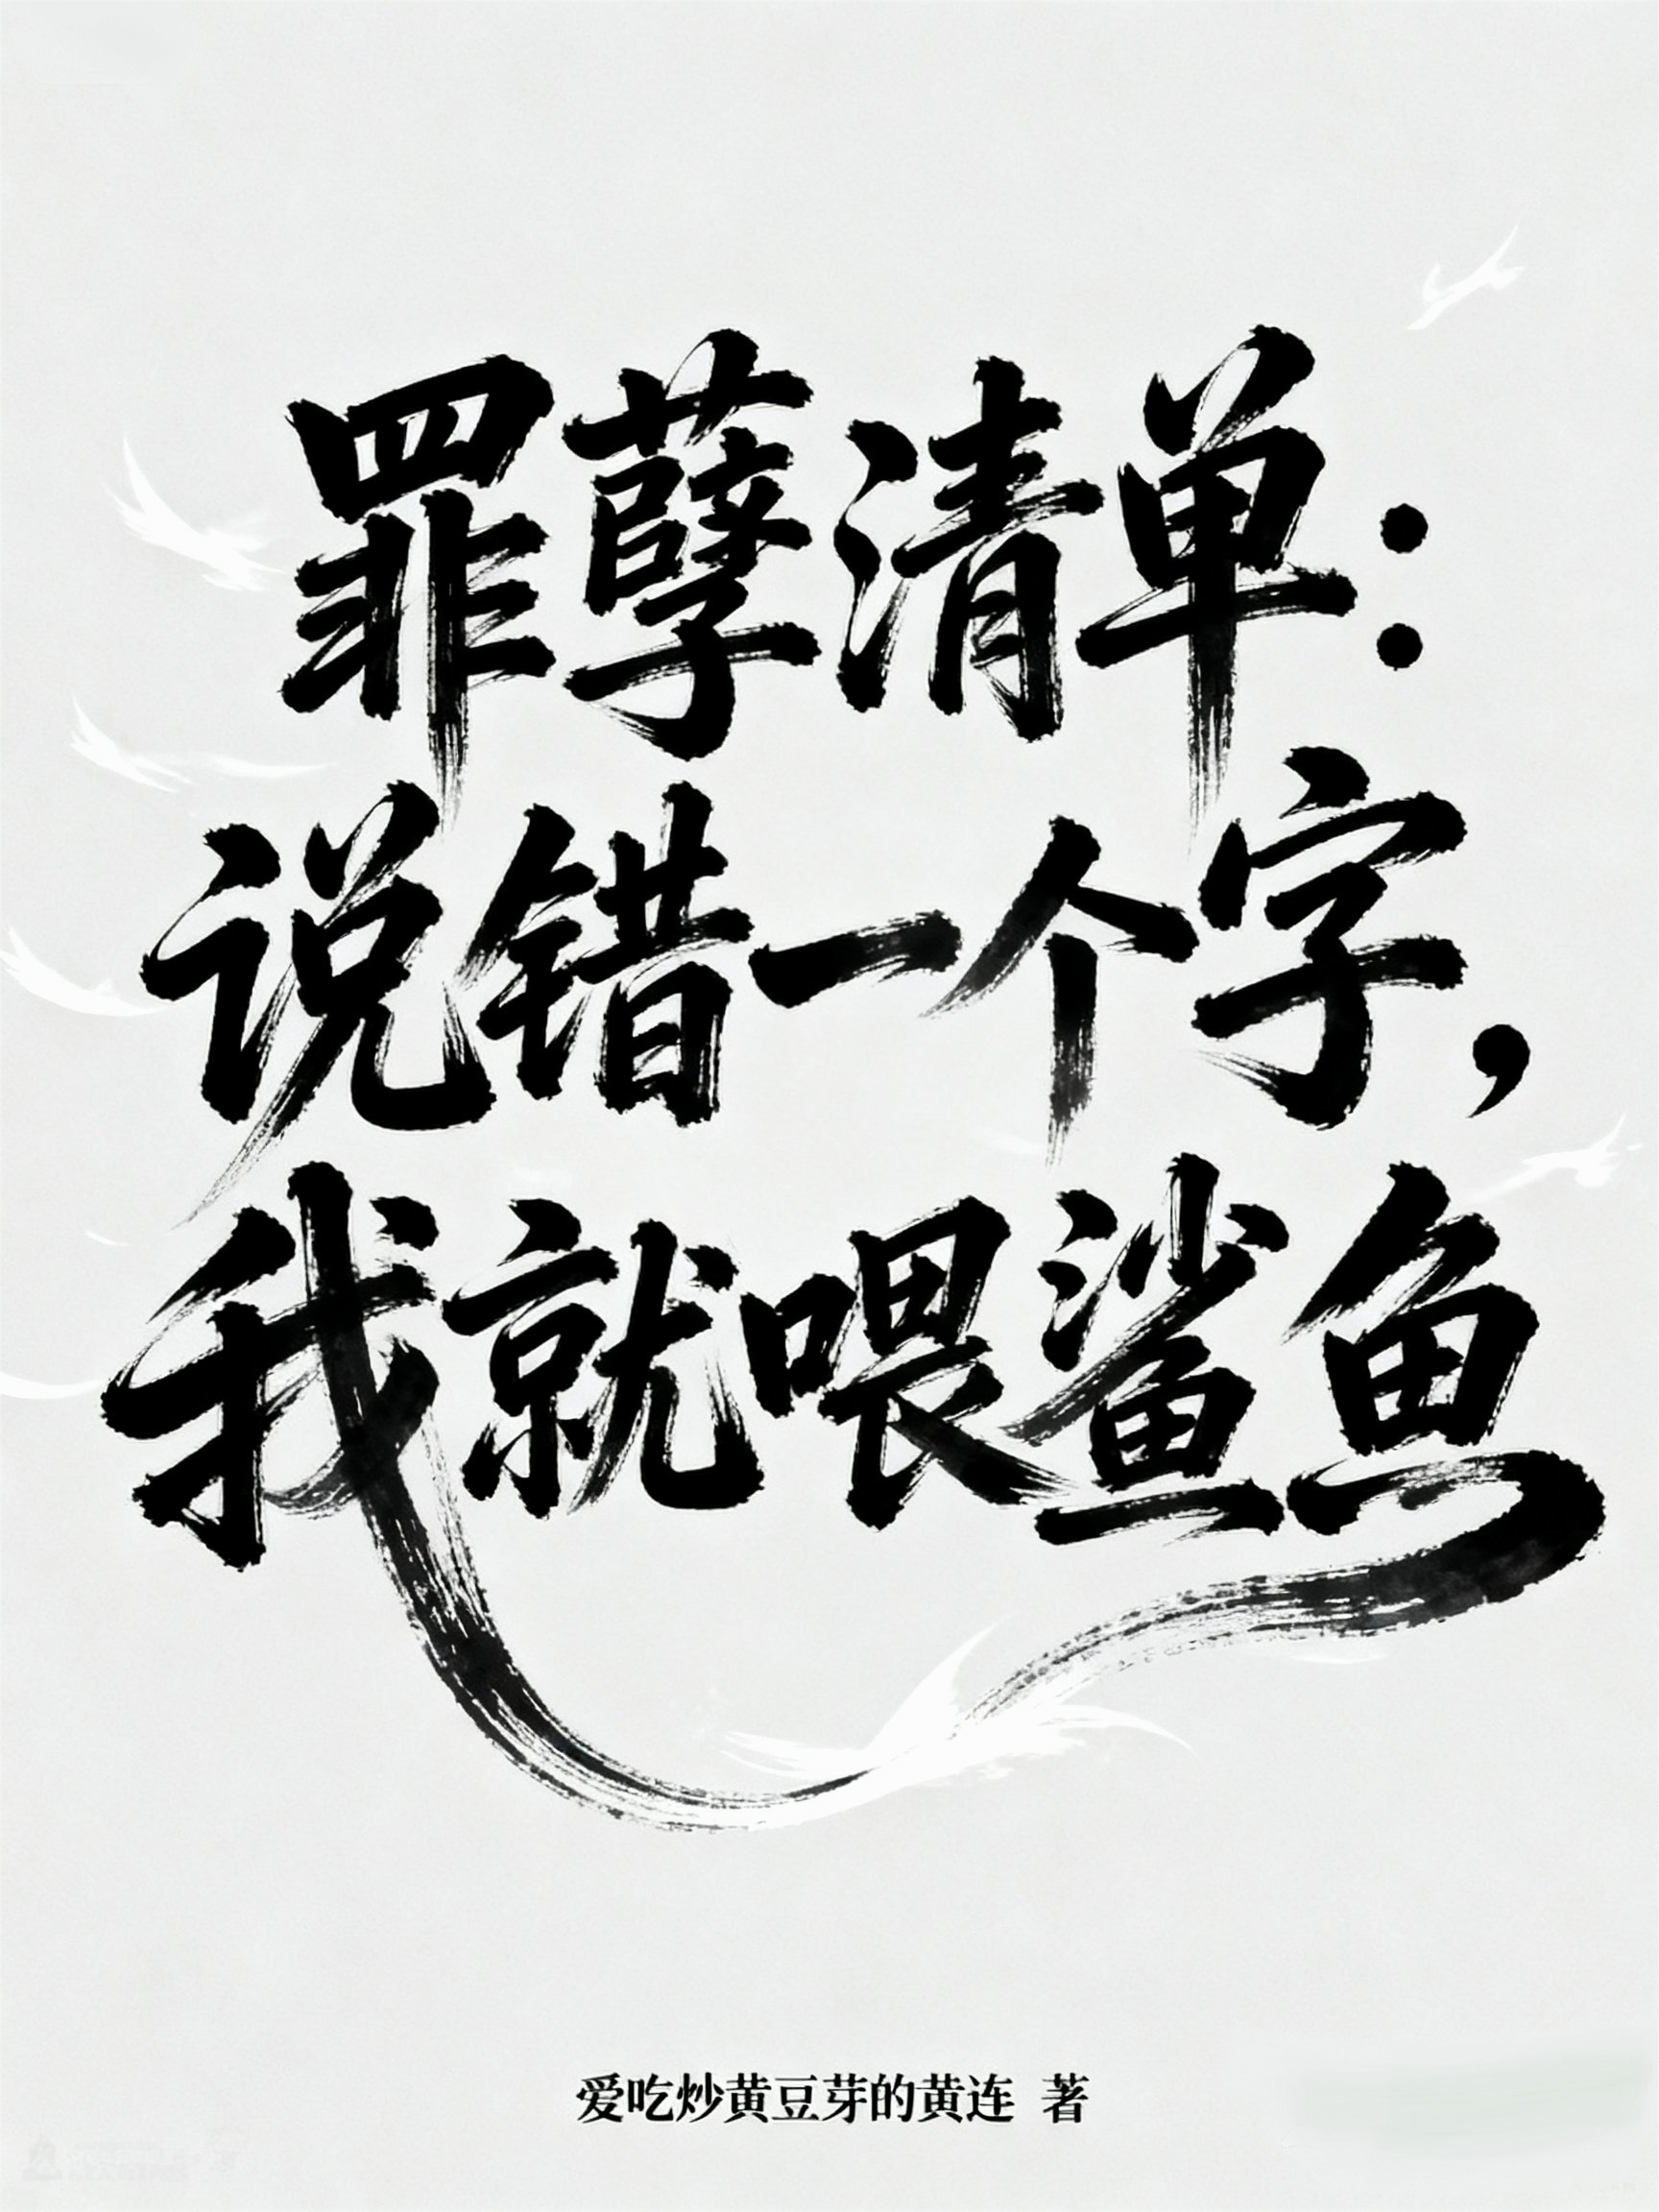 罪孽清单：
说错一个字，
我就喂鲨鱼
爱吃炒黄豆芽的黄连 著